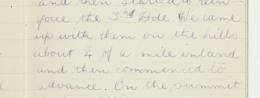 and then started to rein-
force the 3rd Bde. We came
up with them on the hills
about ¾ of a mile inland
and then commenced to
advance. On the summit